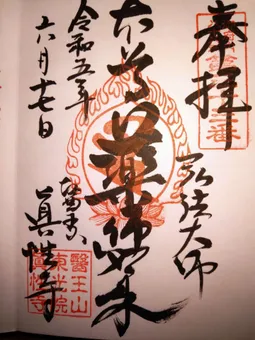 奉拝
弘法大師
本尊薬師如来
令和五年
六月十七日
眞性寺
醫王山
東光院
眞性寺